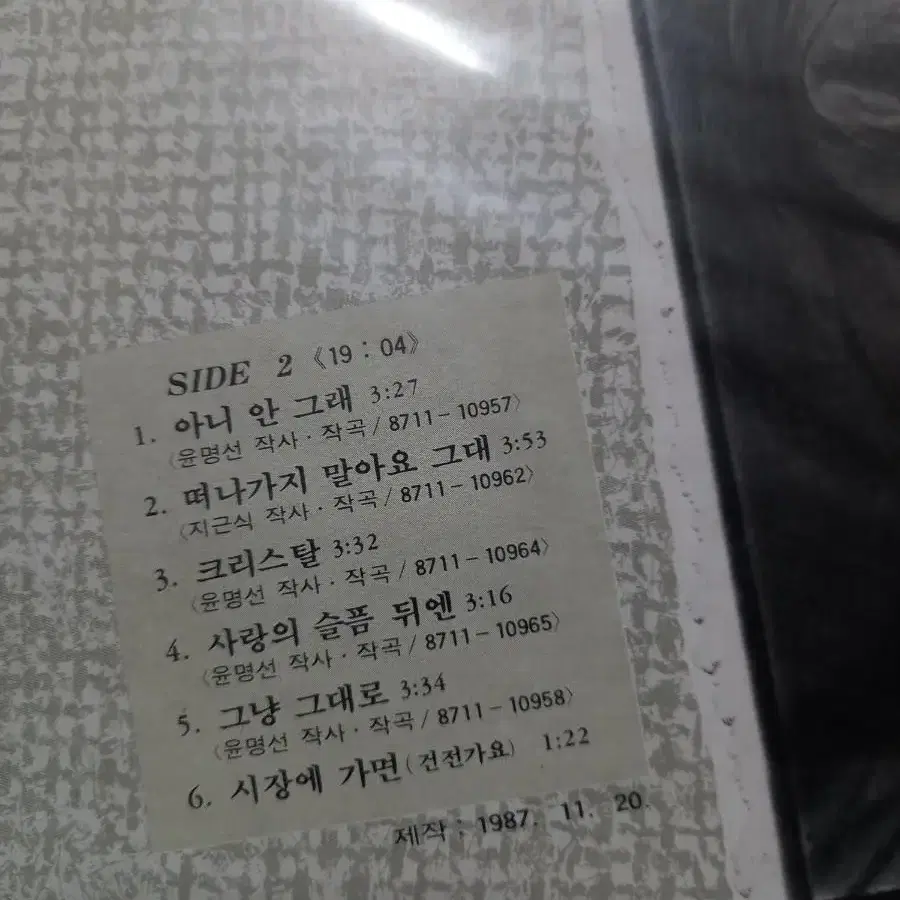 SIDE 2 《19 : 04》
1. 아니 안 그래 3:27
〈윤명선 작사·작곡 / 8711-10957〉
2. 떠나가지 말아요 그대 3:53
〈지근식 작사·작곡 / 8711-10962〉
3. 크리스탈 3:32
〈윤명선 작사·작곡 / 8711-10964〉
4. 사랑의 슬픔 뒤엔 3:16
〈윤명선 작사·작곡 / 8711-10965〉
5. 그냥 그대로 3:34
〈윤명선 작사·작곡 / 8711-10958〉
6. 시장에 가면(건전가요) 1:22
제작 : 1987. 11. 20.